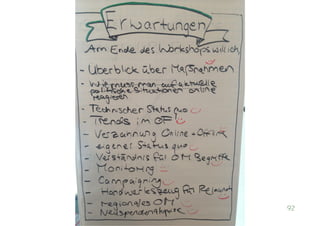 Erwartungen
Am Ende des Workshops will ich
- Überblick über Maßnahmen
- Wie muss man auf aktuelle
politische Situationen online
reagieren
- Technischer Status quo
- Trends im OF
- Verzahnung Online + Offline
- eigener Status quo
- Verständnis für OM Begriffe
- Monitoring
- Campaigning
- Handwerkszeug für
- regionales OM
- Neuspender
92